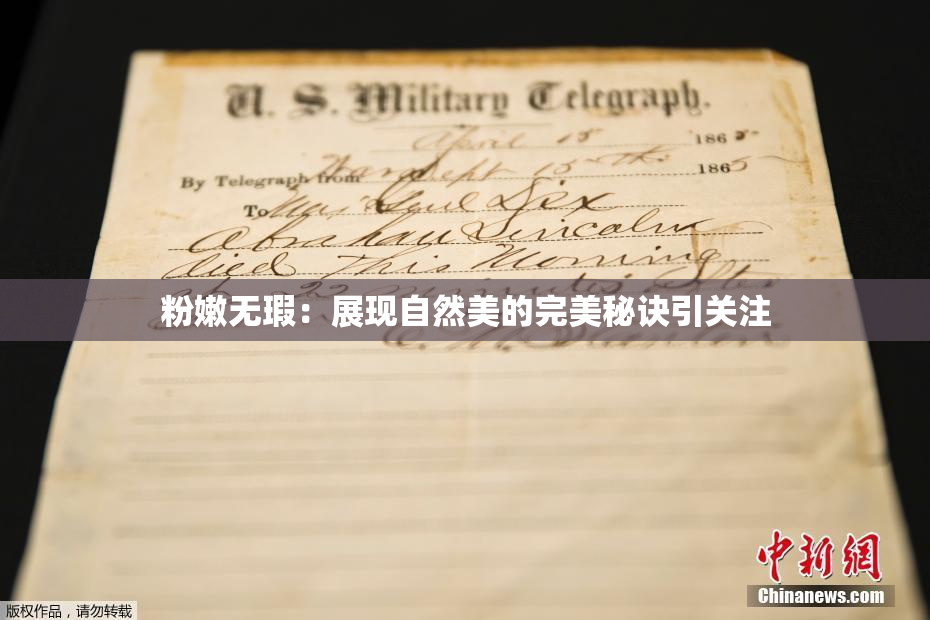 U. S. Military Telegraph.
April 15 1865
By Telegraph from War Dept 15th 1865
To Maj Genl Dix
Abraham Lincoln
died This Morning
at 22 minutes after
粉嫩无瑕：展现自然美的完美秘诀引关注
E. M. Stanton
中新網
Chinanews.com
版权作品，请勿转载